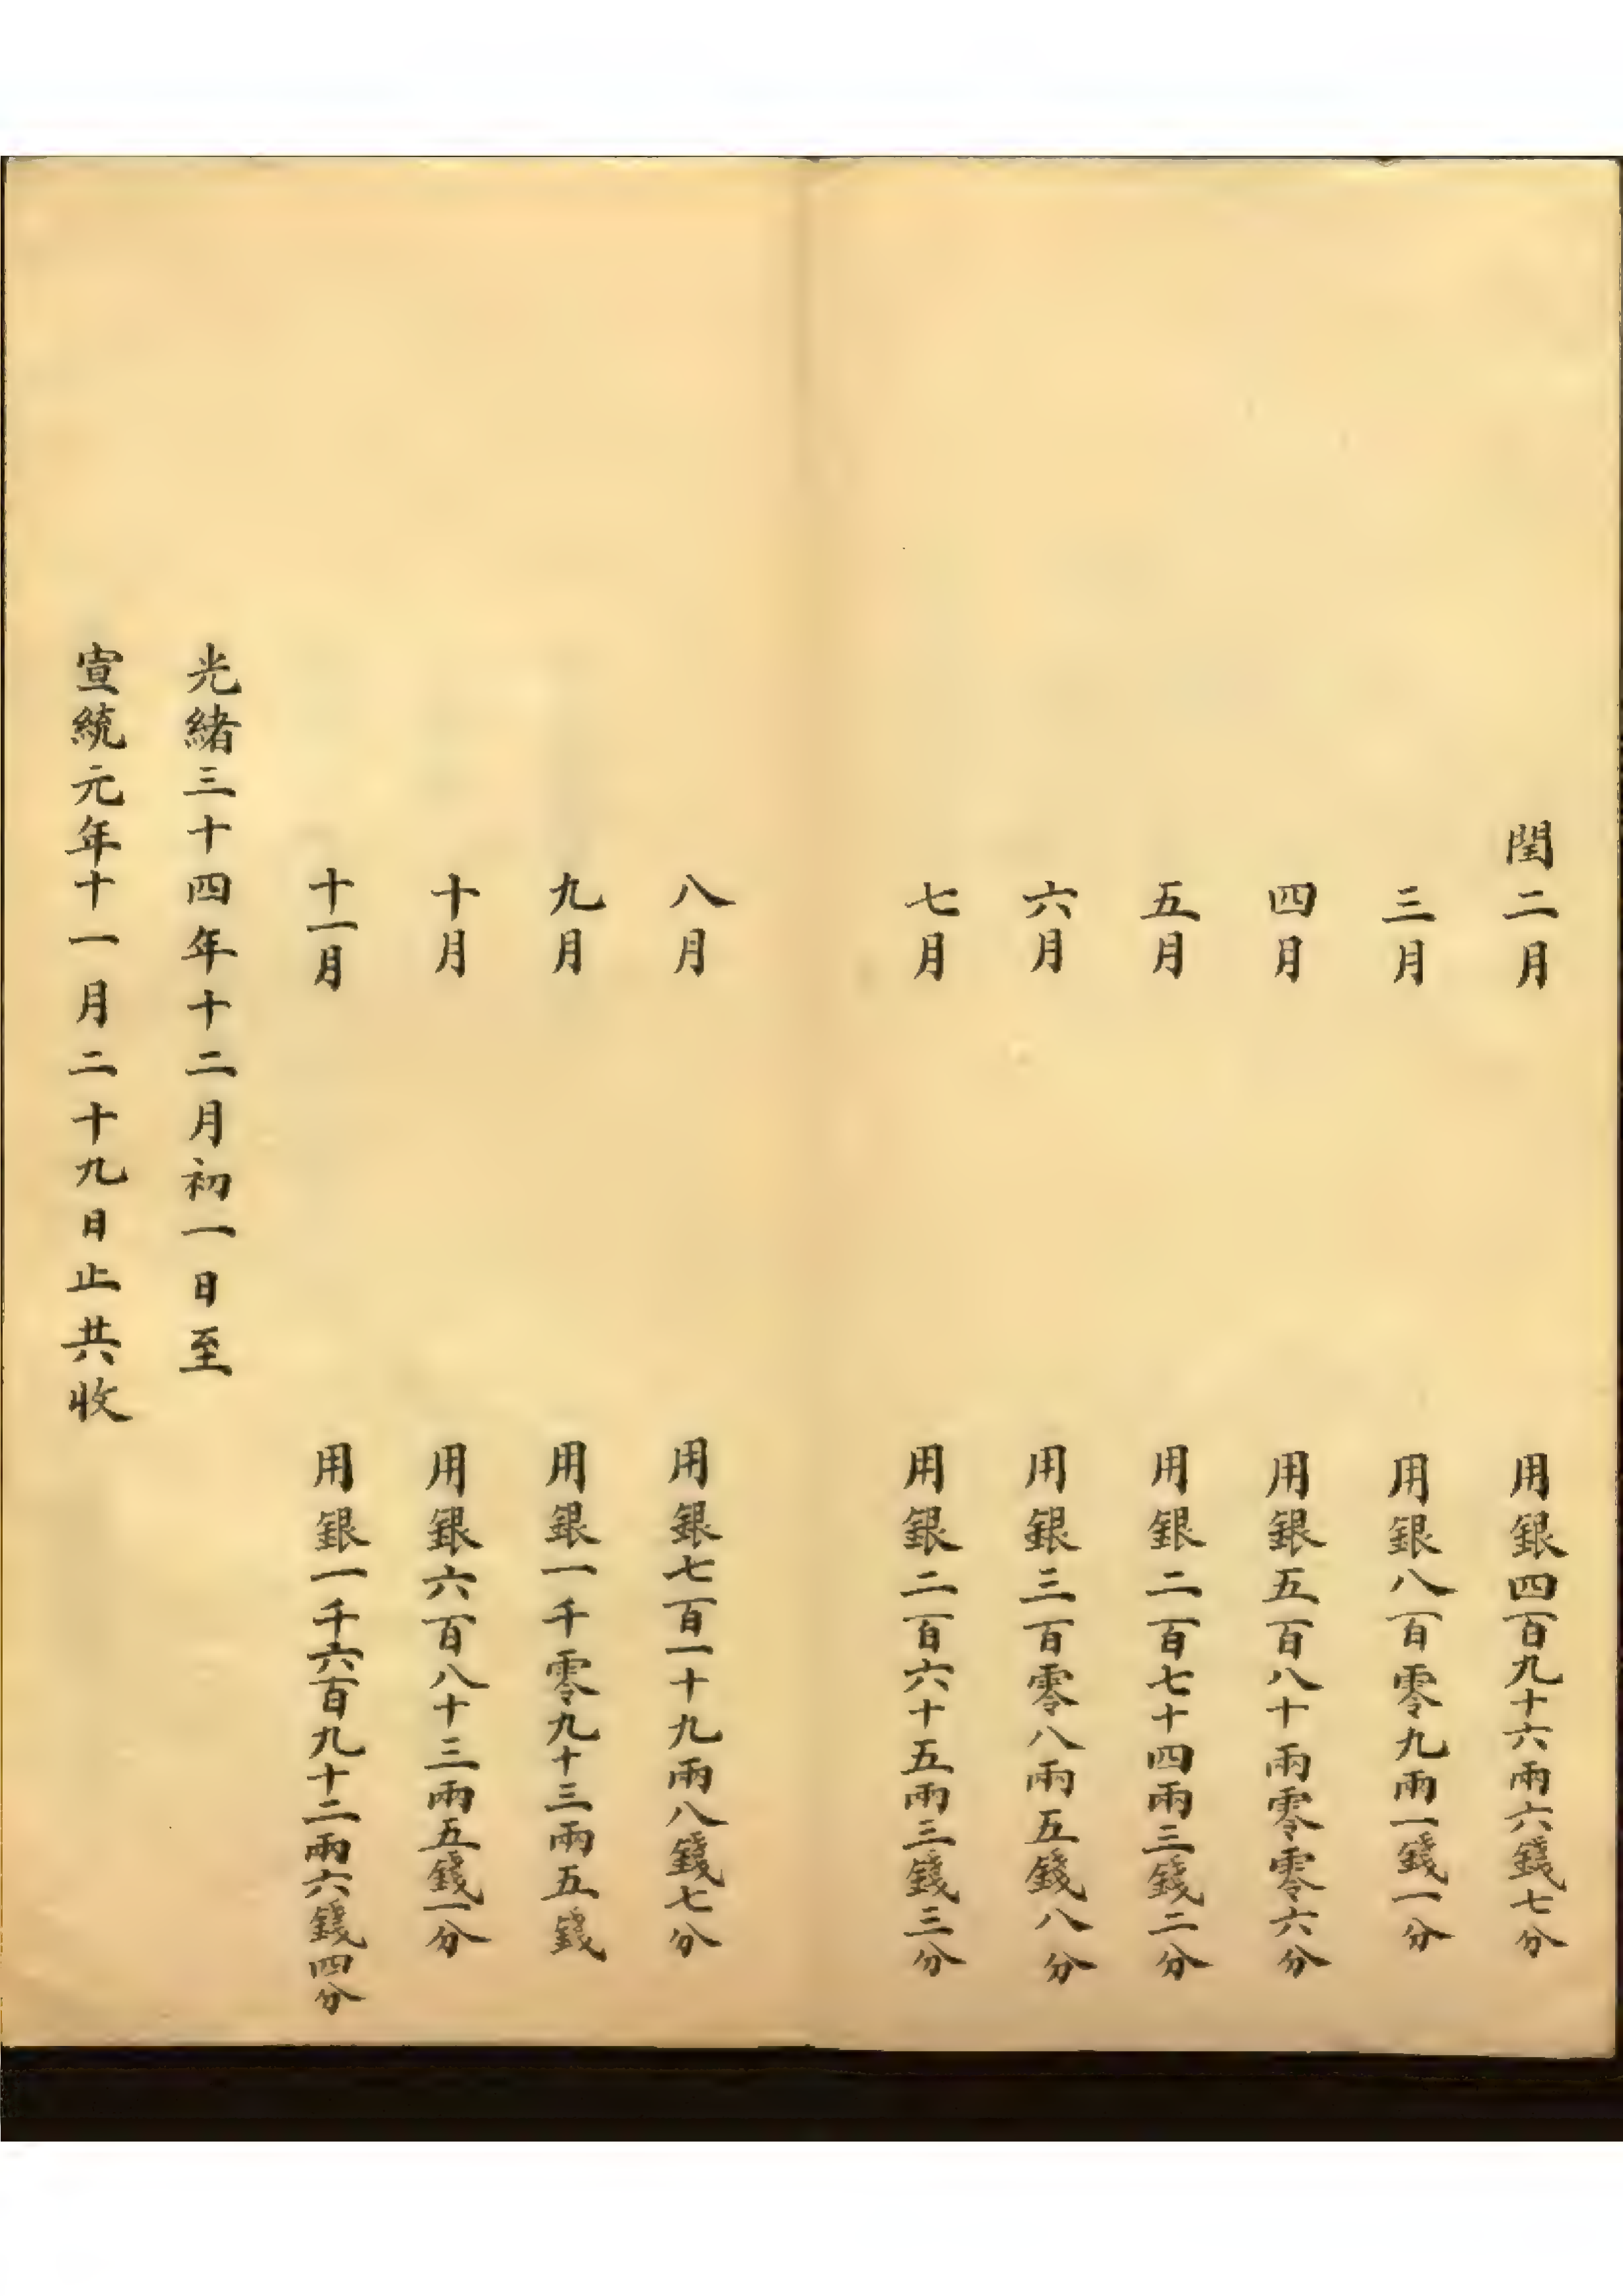 閏二月 用銀四百九十六兩六錢七分
三月 用銀八百零九兩一錢一分
四月 用銀五百八十兩零零六分
五月 用銀二百七十四兩三錢二分
六月 用銀三百零八兩五錢八分
七月 用銀二百六十五兩三錢三分
八月 用銀七百一十九兩八錢七分
九月 用銀一千零九十三兩五錢
十月 用銀六百八十三兩五錢一分
十一月 用銀一千六百九十二兩六錢四分
光緒三十四年十二月初一日至
宣統元年十一月二十九日止共收